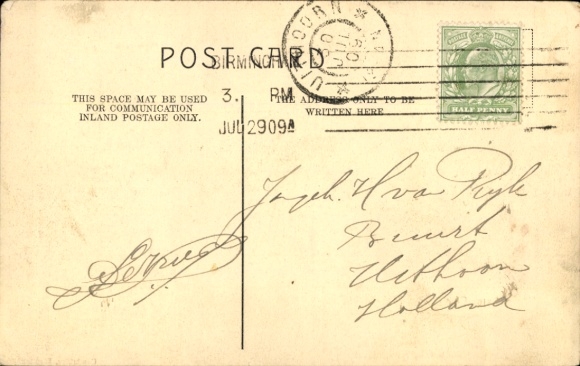 POST CARD
BIRMINGHAM
3. PM
JUL 29 09
UITHOORN
30 JUL 09
HALF PENNY
THIS SPACE MAY BE USED
FOR COMMUNICATION
INLAND POSTAGE ONLY.
THE ADDRESS ONLY TO BE
WRITTEN HERE
H van
Holland